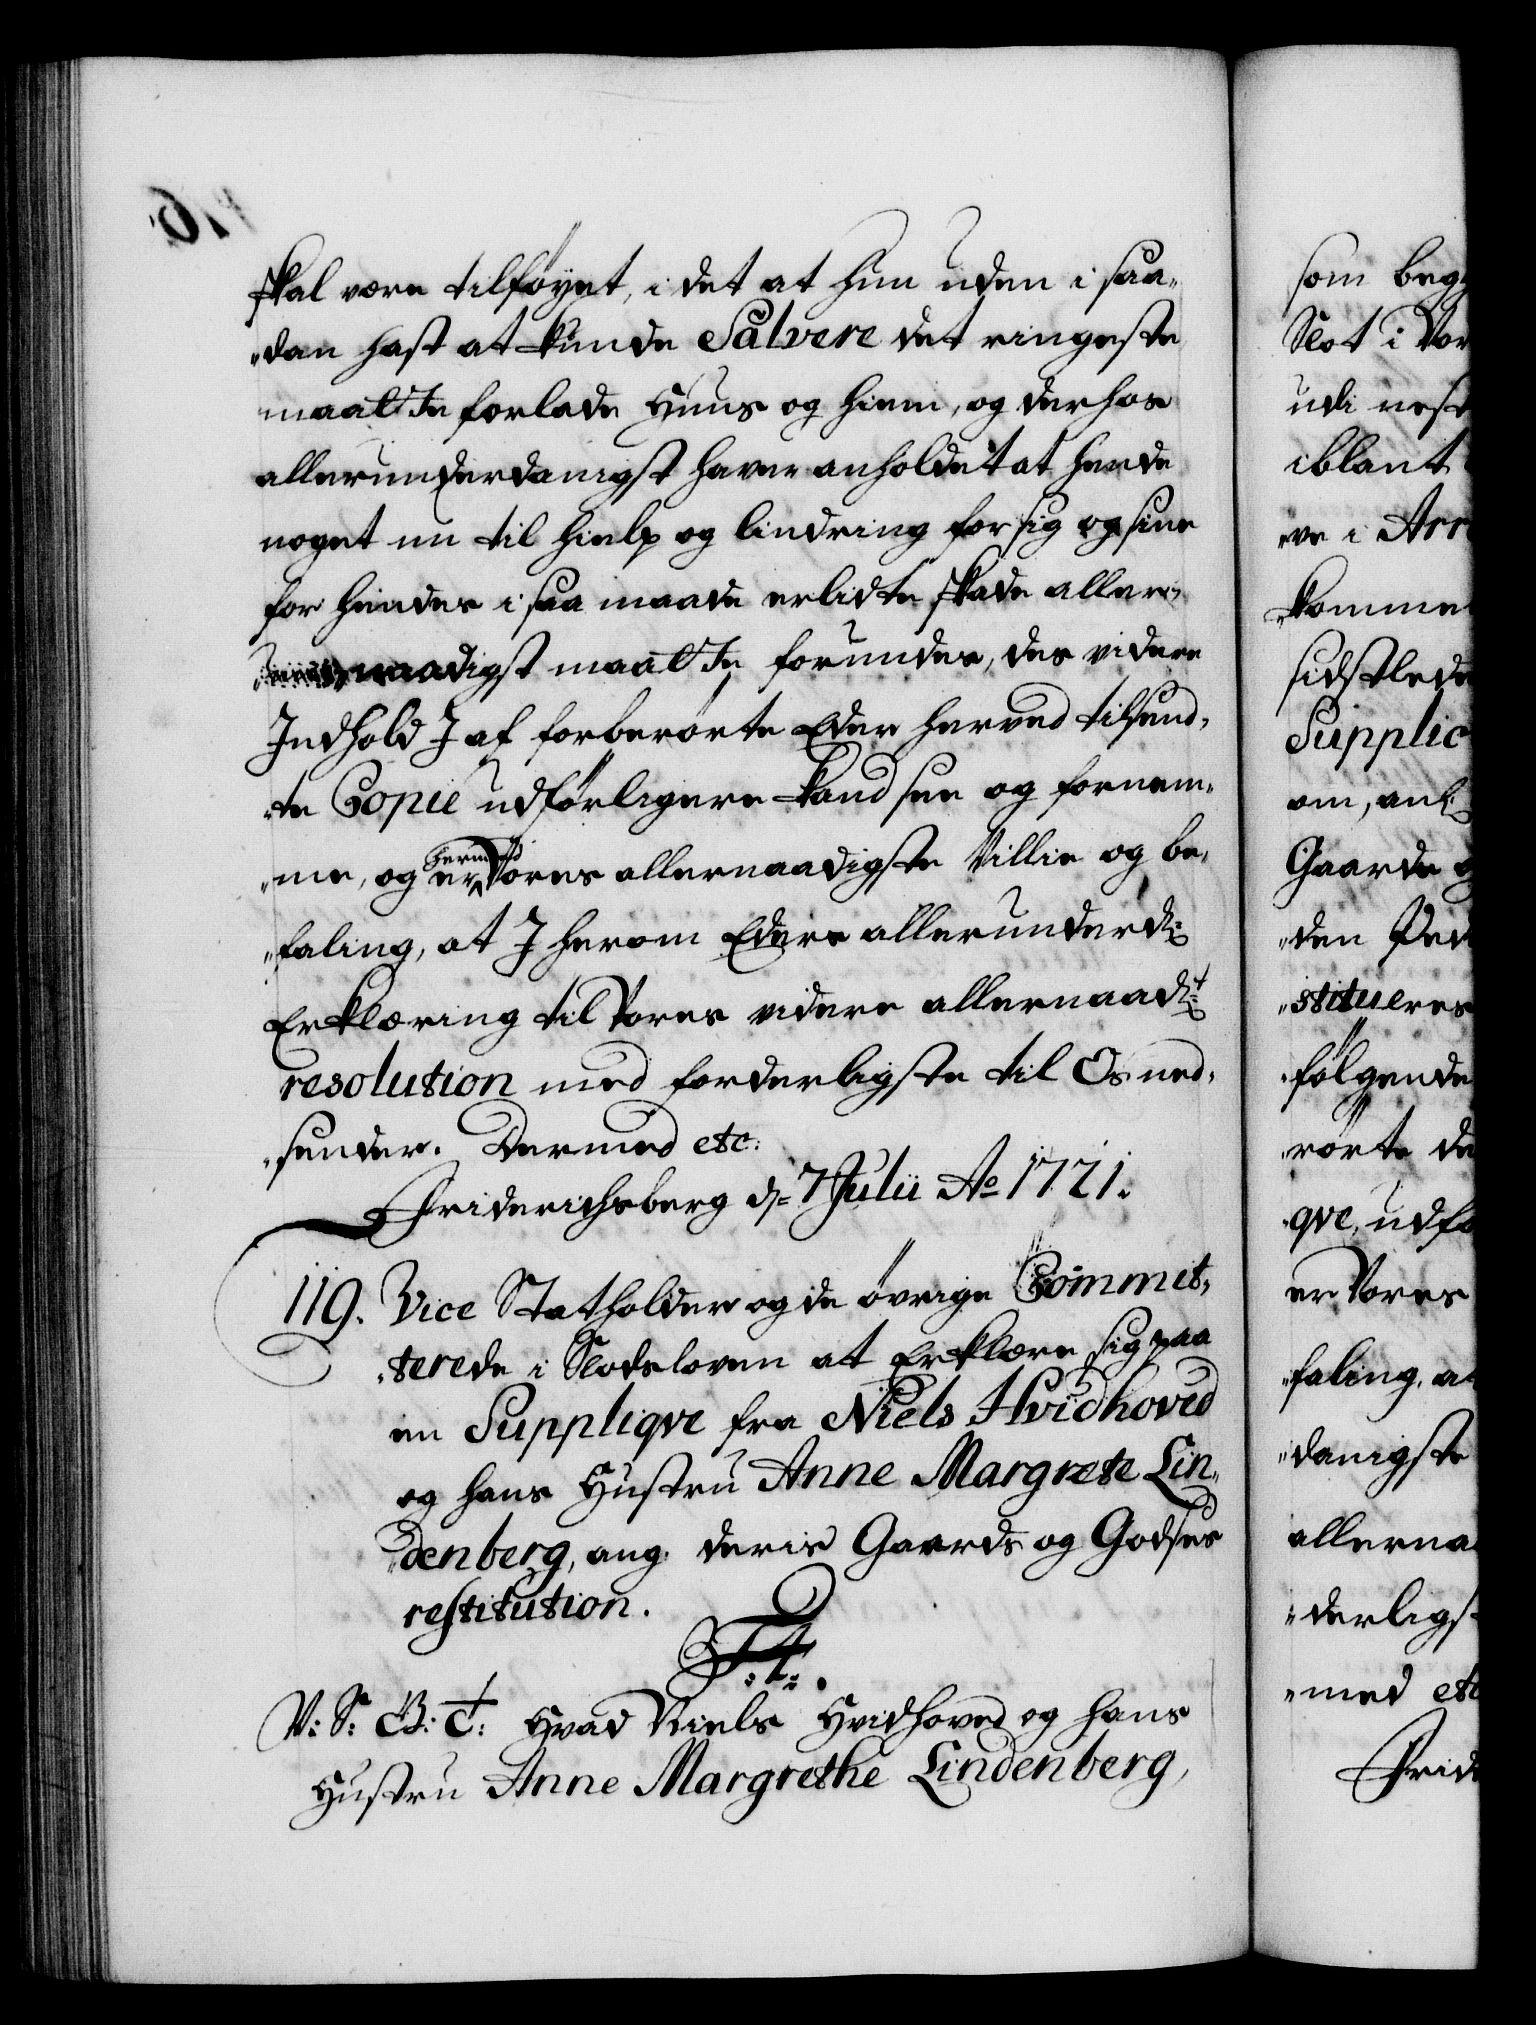 skal være tilföyet, i det at hun uden i saa-
"dan hast at kunde Salvere det ringeste
maatte forlade Huus og hiem, og derhos
allerunderdanigst haver anholdet at hende
noget nu til hielp og lindring for sig og sine
for hendes i saa maade erlidte skade aller-
naadigst maatte forundes, des videre
Indhold I af forberörte Eder herved tilsend-
"te Copie udförligere kand see og fornem-
"me, og er hermed Vores allernaadigste Villie og be-
"faling, at I herom Eders allerunderd:
Erklæring til Vores videre allernaad:t
resolution med forderligste til Os ned-
"sender. Dermed etc:
Friderichsberg d= 7 Julii Ao 1721.
119. Vice Statholder og de övrige Committ-
"terede i Slodsloven at Erklære sig paa
en Suppliqve fra Niels Hvidhoved
og hans Hustru Anne Margrete Lin-
"denberg, ang: deris Gaards og Godses
restitution.
F. 4.
V: S: G: T: Hvad Niels Hvidhoved og hans
Hustru Anne Margrethe Lindenberg,
som beg
Slot i Vor
udi nest
iblant
"ve i Arr
"komme
sidstlede
Supplic
om, anl
Gaarde
"den Ped
"stitueres
"fölgende
"rörte de
"qve, udfö
er Vores
"faling, at
"danigste
allerna
"derligst
"med etc
Frid